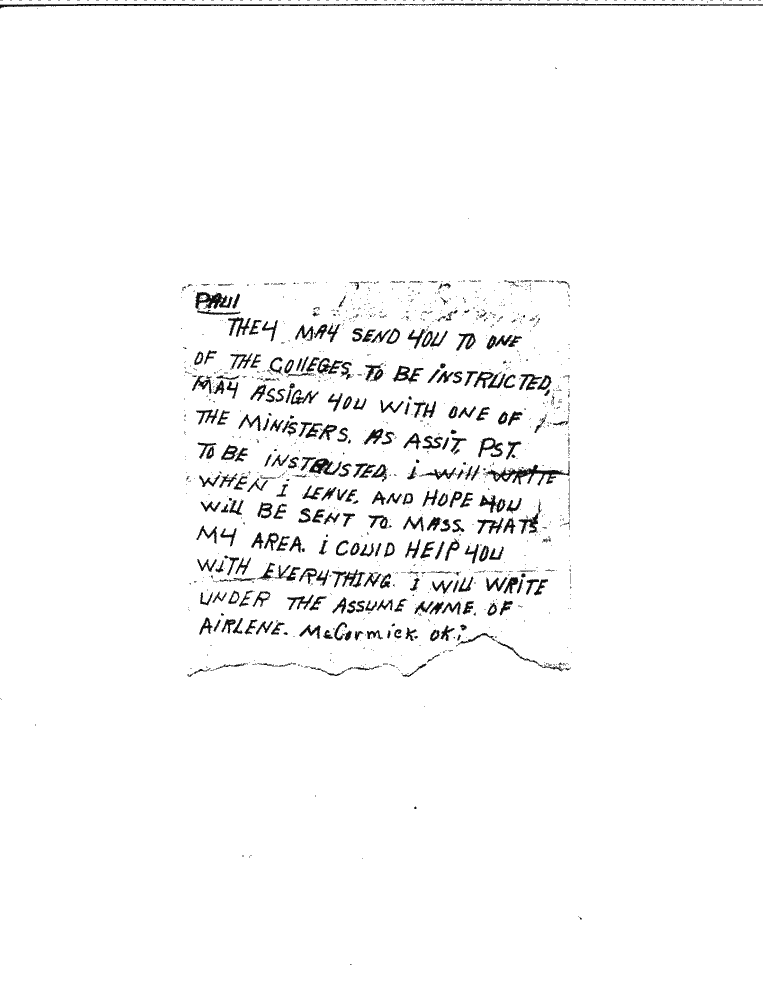 PAUl
THEY MAY SEND YOU TO ONE
OF THE COllEGES, TO BE iNSTRUCTED,
MAY ASSiGN YOU WiTH ONE OF
THE MiNiSTERS. AS ASSiT, PST.
TO BE iNSTRUSTED, i will WRiTE
WHEN I LEAVE, AND HOPE YOU
WiLL BE SENT TO MASS. THATS
MY AREA. i COUlD HElP YOU
WiTH EVERYTHiNG. I WiLL WRiTE
UNDER THE ASSUME NAME. OF
AiRLENE. McCormick. OK?